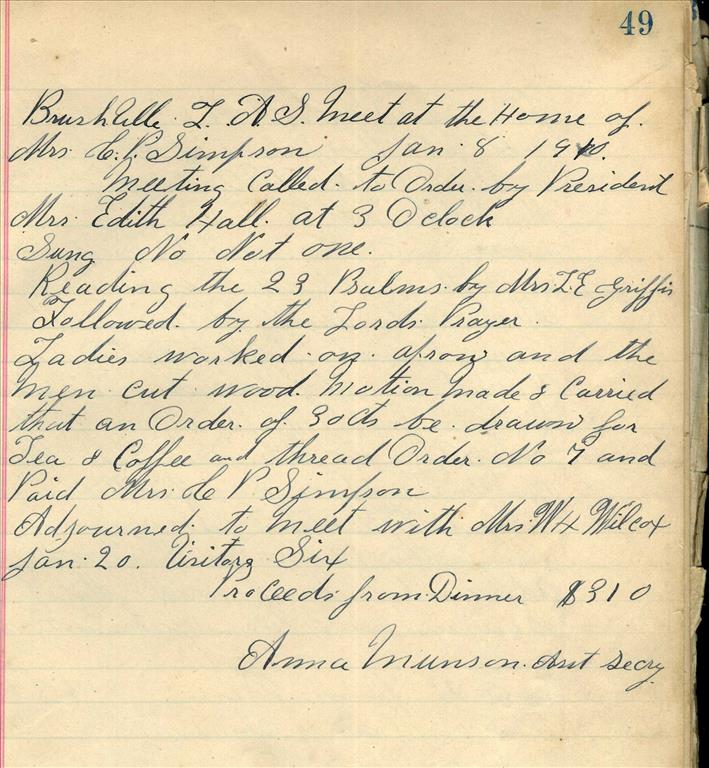 49
Brushville L. A. S. Meet at the Home of.
Mrs. C. P. Simpson Jan. 8 1910.
Meeting Called. to Order. by President
Mrs. Edith Hall. at 3 Oclock
Sung No Not one.
Reading the 23 Psalms. by Mrs L. E Griffis
Followed. by the Lords. Prayer.
Ladies worked. on. aprons and the
men cut wood. Motion made & Carried
that an Order. of 30cts be. drawn for
Tea & Coffee and thread Order. No 7 and
Paid Mrs. C P Simpson
Adjourned. to meet with Mrs. W H Wilcox
Jan. 20. Visitors Six
Proceeds from Dinner $3 10
Anna Munson. Asst Secry